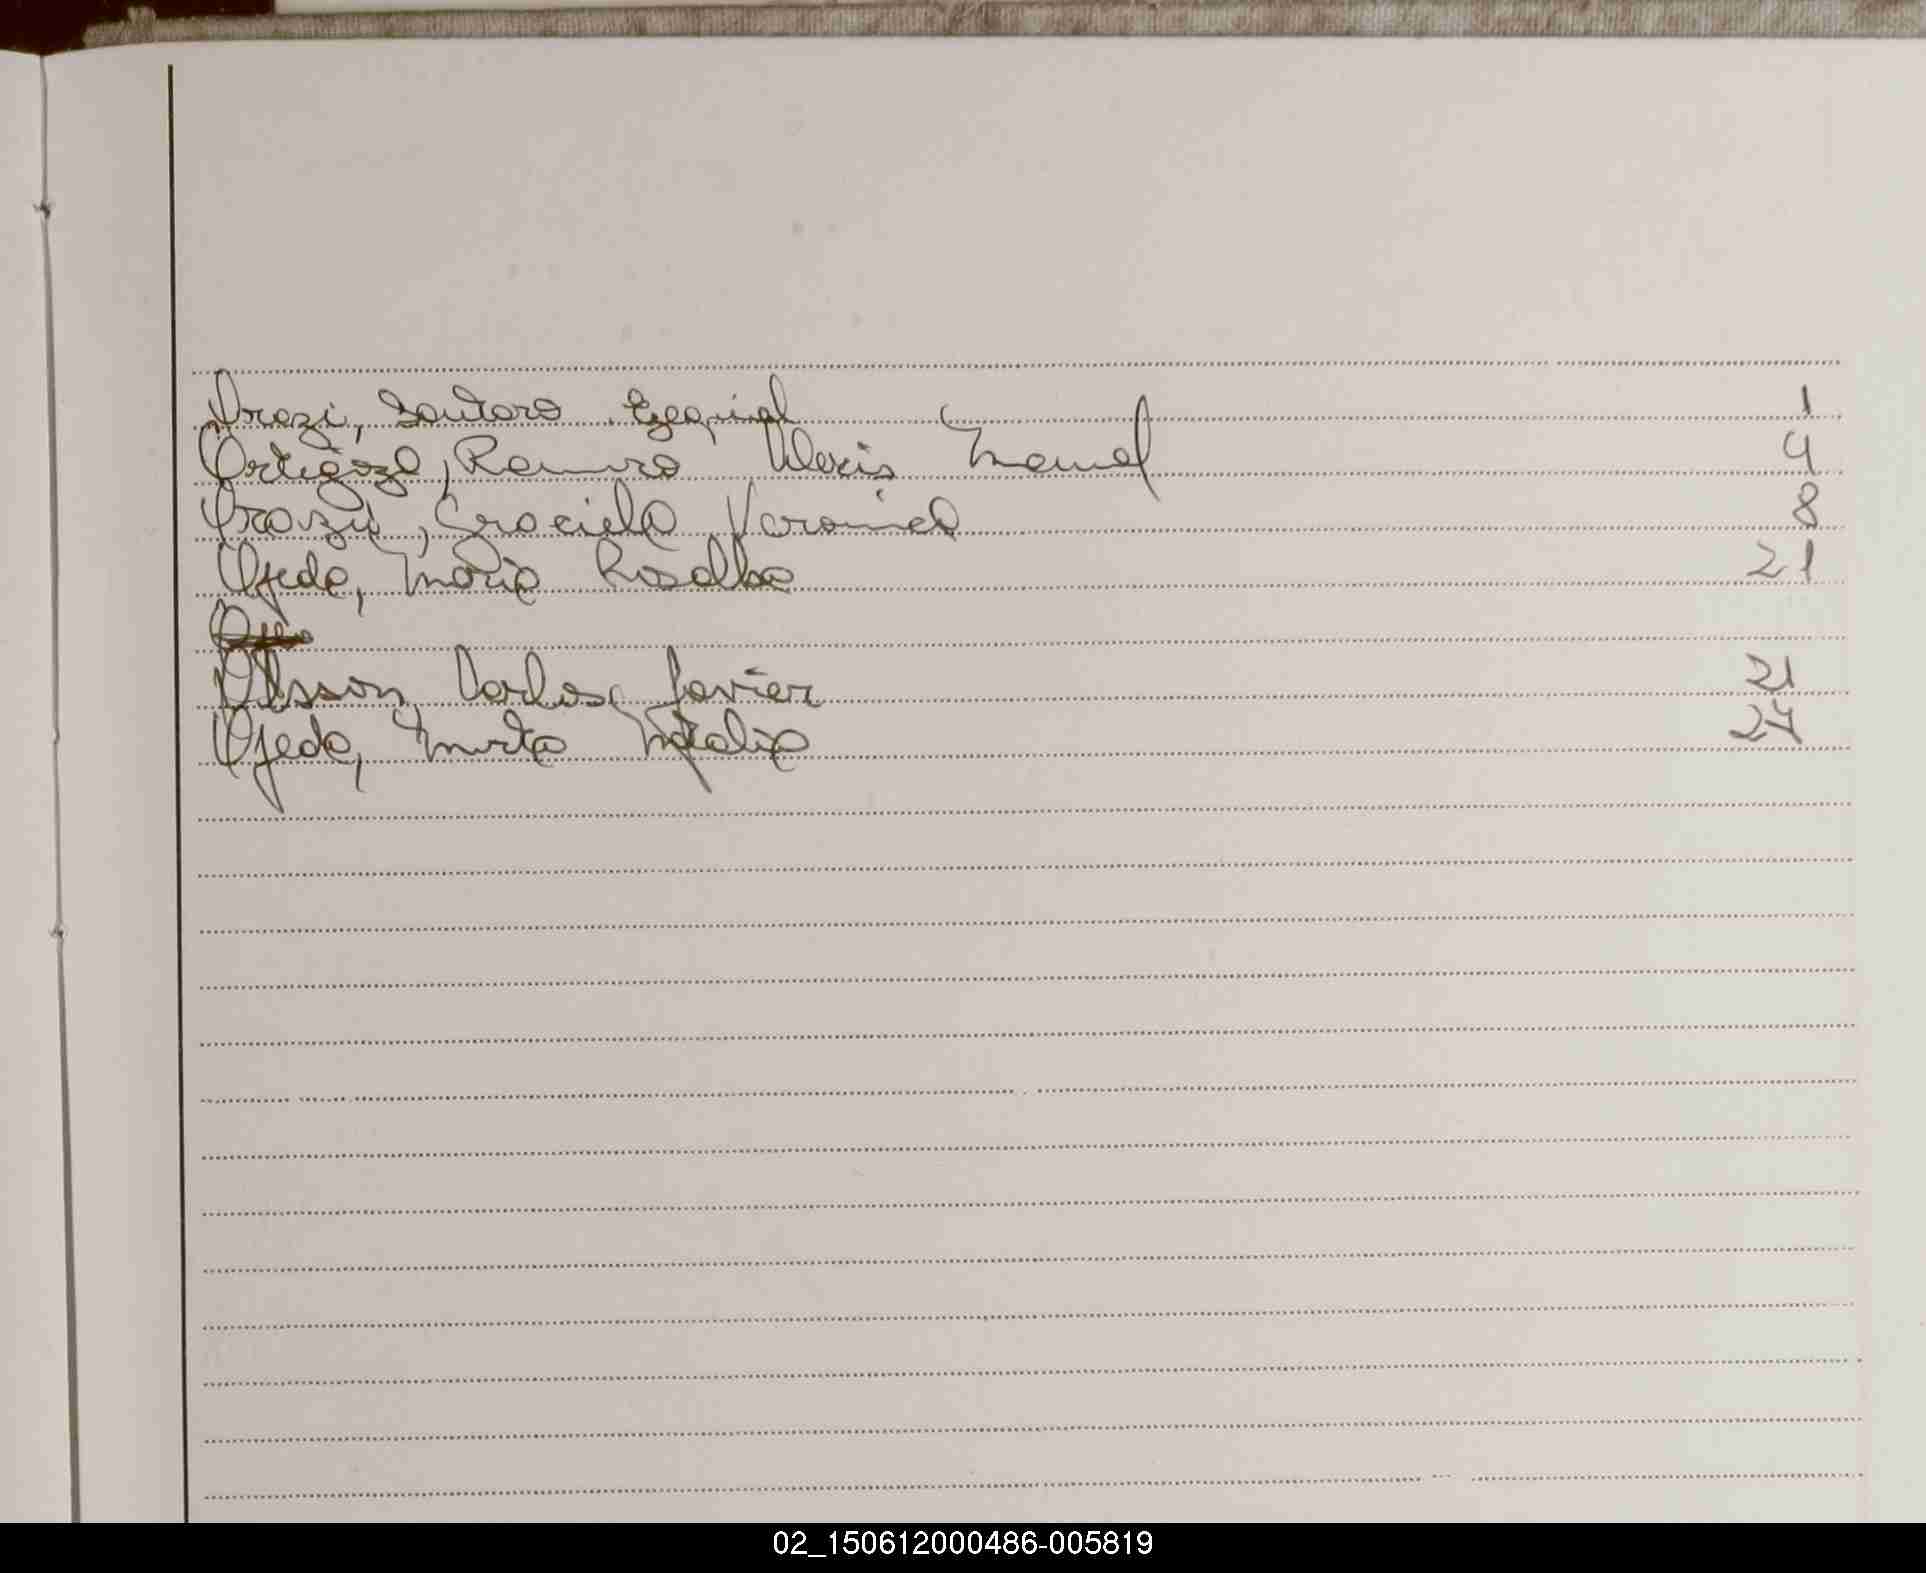 Orazi, Lautaro Ezequiel 1
Ortigoza, Ramiro Alexis Manuel 4
Orozu, Graciela Veronica 8
Ojeda, Maria Rosalba 21
Olsson, Carlos Javier 21
Ojeda, Mirta Natalia 24
02_150612000486-005819